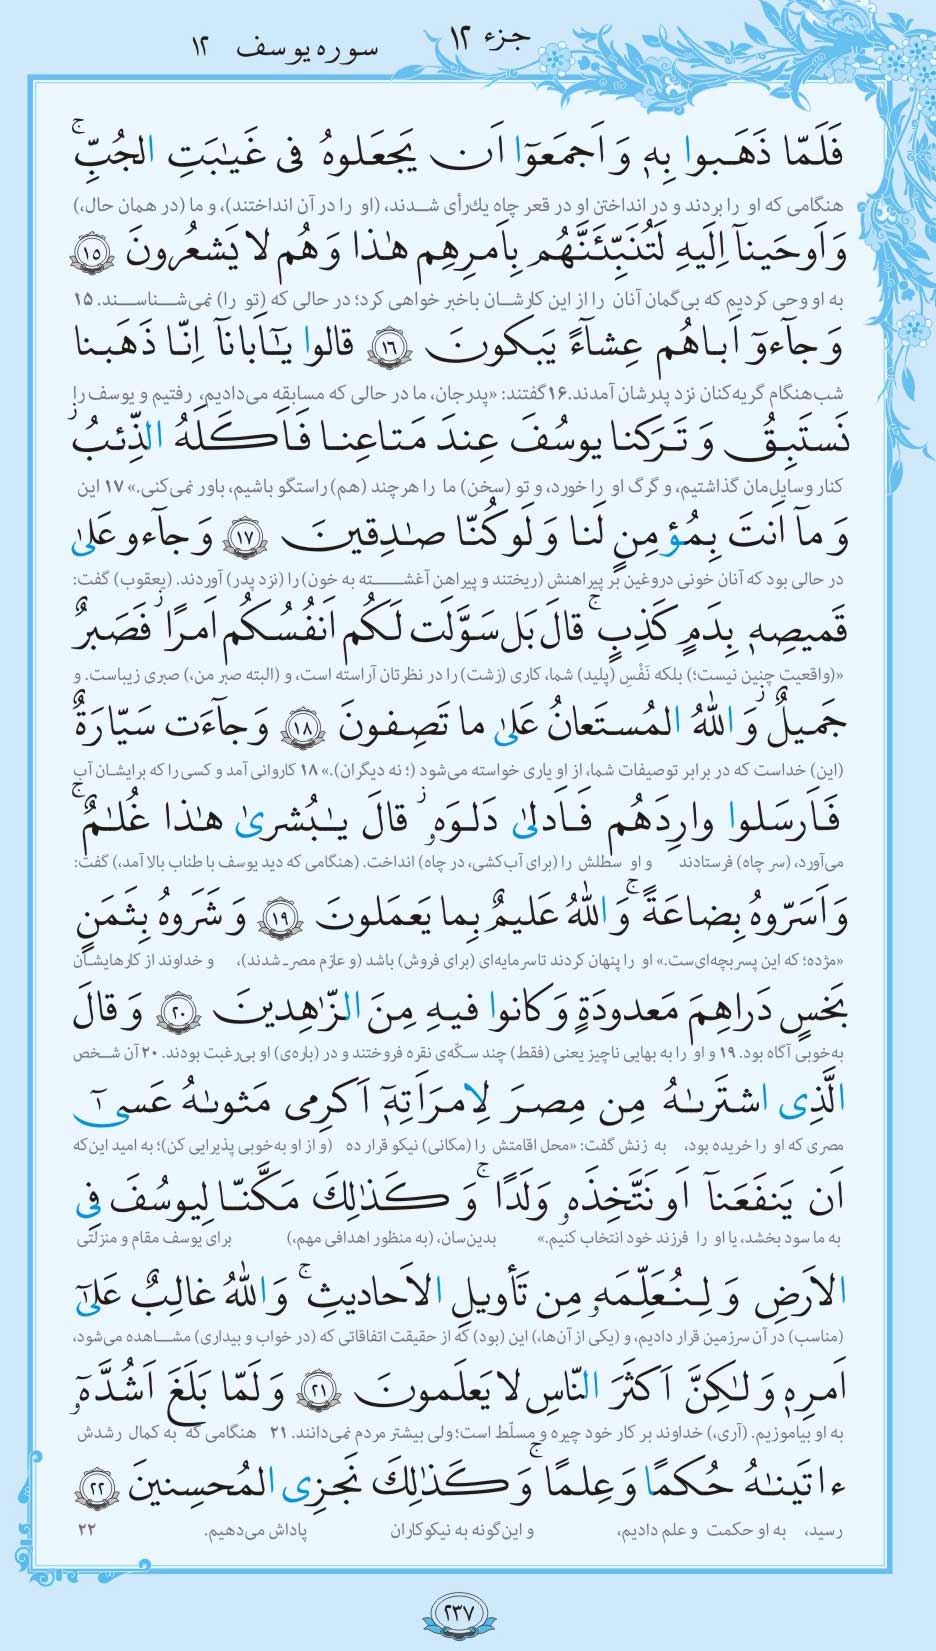 جزء ۱۲
سوره یوسف ۱۲
فَلَمّا ذَهَبوا بِهٖ وَ اَجمَعوٓا اَن یَجعَلوهُ فی غَیٰبَتِ الجُبِّ ۚ
هنگامی که او را بردند و در انداختن او در قعر چاه یک‌رأی شدند، (او را در آن انداختند)، و ما (در همان حال،)
وَ اَوحَینآ اِلَیهِ لَتُنَبِّئَنَّهُم بِاَمرِهِم هٰذا وَ هُم لا یَشعُرونَ ۱۵
به او وحی کردیم که بی‌گمان آنان را از این کارشان باخبر خواهی کرد؛ در حالی که (تو را) نمی‌شناسند. ۱۵
وَ جآءوٓ اَباهُم عِشآءً یَبکونَ ۱۶ قالوا یٰٓاَبانآ اِنّا ذَهَبنا
شب‌هنگام گریه‌کنان نزد پدرشان آمدند. ۱۶ گفتند: «پدرجان، ما در حالی که مسابقه می‌دادیم، رفتیم و یوسف را
نَستَبِقُ وَ تَرَکنا یوسُفَ عِندَ مَتاعِنا فَاَکَلَهُ الذِّئبُ ۖ
کنار وسایل‌مان گذاشتیم، و گرگ او را خورد، و تو (سخن) ما را هرچند (هم) راستگو باشیم، باور نمی‌کنی.» ۱۷ این
وَ مآ اَنتَ بِمُؤمِنٍ لَنا وَ لَو کُنّا صٰدِقینَ ۱۷ وَ جآءو عَلیٰ
در حالی بود که آنان خونی دروغین بر پیراهنش (ریختند و پیراهن آغشته به خون) را (نزد پدر) آوردند. (یعقوب) گفت:
قَمیصِهٖ بِدَمٍ کَذِبٍ ۚ قالَ بَل سَوَّلَت لَکُم اَنفُسُکُم اَمرًا ۖ فَصَبرٌ
«(واقعیت چنین نیست؛) بلکه نَفْسِ (پلید) شما، کاری (زشت) را در نظرتان آراسته است، و (البته صبر من،) صبری زیباست. و
جَمیلٌ ۖ وَ اللّٰهُ المُستَعانُ عَلیٰ ما تَصِفونَ ۱۸ وَ جآءَت سَیّارَةٌ
(این) خداست که در برابر توصیفات شما، از او یاری خواسته می‌شود (؛ نه دیگران).» ۱۸ کاروانی آمد و کسی را که برایشان آب
فَاَرسَلوا وارِدَهُم فَاَدلیٰ دَلوَهٗ ۖ قالَ یٰبُشریٰ هٰذا غُلٰمٌ ۚ
می‌آورد، (سر چاه) فرستادند و او سطلش را (برای آب‌کشی، در چاه) انداخت. (هنگامی که دید یوسف با طناب بالا آمد،) گفت:
وَ اَسَرّوهُ بِضاعَةً ۚ وَ اللّٰهُ عَلیمٌ بِما یَعمَلونَ ۱۹ وَ شَرَوهُ بِثَمَنٍ
«مژده؛ که این پسربچه‌ای‌ست.» او را پنهان کردند تا سرمایه‌ای (برای فروش) باشد (و عازم مصر شدند)، و خداوند از کارهایشان
بَخسٍ دَراهِمَ مَعدودَةٍ وَ کانوا فیهِ مِنَ الزّاهِدینَ ۲۰ وَ قالَ
به‌خوبی آگاه بود. ۱۹ و او را به بهایی ناچیز یعنی (فقط) چند سکّه‌ی نقره فروختند و در (باره‌ی) او بی‌رغبت بودند. ۲۰ آن شخص
الَّذِی اشتَرىٰهُ مِن مِصرَ لِامرَاَتِهٖٓ اَکرِمی مَثوىٰهُ عَسیٰٓ
مصری که او را خریده بود، به زنش گفت: «محل اقامتش را (مکانی) نیکو قرار ده (و از او به‌خوبی پذیرایی کن)؛ به امید این‌که
اَن یَنفَعَنآ اَو نَتَّخِذَهٗ وَلَدًا ۚ وَ کَذٰلِکَ مَکَّنّا لِیوسُفَ فِی
به ما سود بخشد، یا او را فرزند خود انتخاب کنیم.» بدین‌سان، (به منظور اهدافی مهم،) برای یوسف مقام و منزلتی
الاَرضِ وَ لِنُعَلِّمَهٗ مِن تَأویلِ الاَحادیثِ ۚ وَ اللّٰهُ غالِبٌ عَلیٰٓ
(مناسب) در آن سرزمین قرار دادیم، و (یکی از آن‌ها،) این (بود) که از حقیقت اتفاقاتی که (در خواب و بیداری) مشاهده می‌شود،
اَمرِهٖ وَ لٰکِنَّ اَکثَرَ النّاسِ لا یَعلَمونَ ۲۱ وَ لَمّا بَلَغَ اَشُدَّهٗٓ
به او بیاموزیم. (آری،) خداوند بر کار خود چیره و مسلّط است؛ ولی بیشتر مردم نمی‌دانند. ۲۱ هنگامی که به کمال رشدش
ءاتَینٰهُ حُکمًا وَ عِلمًا ۚ وَ کَذٰلِکَ نَجزِی المُحسِنینَ ۲۲
رسید، به او حکمت و علم دادیم، و این‌گونه به نیکوکاران پاداش می‌دهیم. ۲۲
۲۳۷